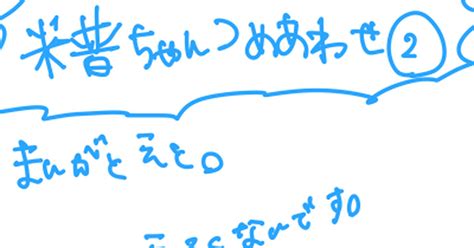 米昔ちゃんつめあわせ②
まんがとえと。
ないです。